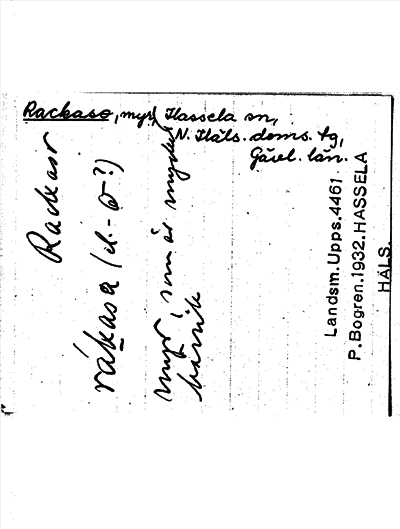 Rackaso, myr, Hassela sn,
N. Häls. doms. tg,
Gävl. län.
Rackaso
råkasa (el. -o?)
myr, som är mycket
bärrik
Landsm. Upps. 4461
P. Bogren. 1932. HASSELA
HÄLS.